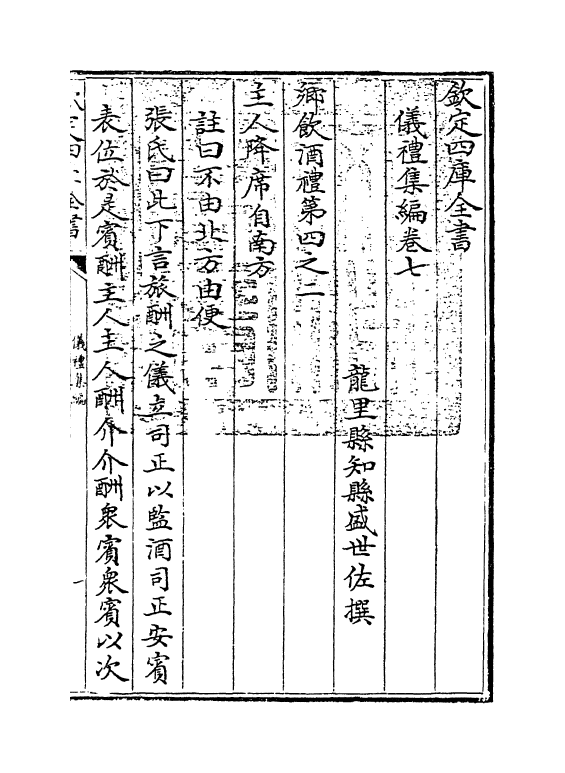 欽定四庫全書
儀禮集編卷七
龍里縣知縣盛世佐撰
鄉飲酒禮第四之二
主人降席自南方
註曰不由北方由便
張氏曰此下言旅酬之儀立司正以監酒司正安賓
表位於是賓酬主人主人酬介介酬衆賓衆賓以次
儀禮集編
一